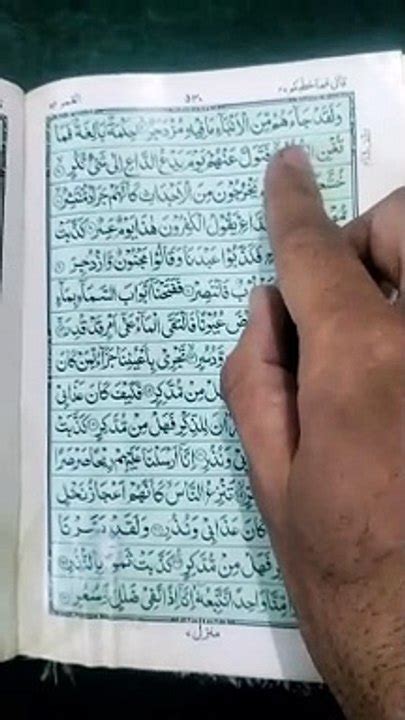 قال فما خطبكم ٢٧ ٥٣٠ القمر ٥٤
وَلَقَدْ جَآءَهُمْ مِّنَ الْاَنْۢبَآءِ مَا فِيْهِ مُزْدَجَرٌ حِكْمَةٌۢ بَالِغَةٌ فَمَا
تُغْنِ فَتَوَلَّ عَنْهُمْ يَوْمَ يَدْعُ الدَّاعِ اِلٰى شَىْءٍ نُّكُرٍ
يَخْرُجُوْنَ مِنَ الْاَجْدَاثِ كَاَنَّهُمْ جَرَادٌ مُّنْتَشِرٌ
الدَّاعِ يَقُوْلُ الْكٰفِرُوْنَ هٰذَا يَوْمٌ عَسِرٌ كَذَّبَتْ
فَكَذَّبُوْا عَبْدَنَا وَقَالُوْا مَجْنُوْنٌ وَّازْدُجِرَ
فَانْتَصِرْ فَفَتَحْنَآ اَبْوَابَ السَّمَآءِ بِمَآءٍ
عُيُوْنًا فَالْتَقَى الْمَآءُ عَلٰٓى اَمْرٍ قَدْ قُدِرَ
وَّدُسُرٍ تَجْرِيْ بِاَعْيُنِنَا جَزَآءً لِّمَنْ كَانَ
مِنْ مُّدَّكِرٍ فَكَيْفَ كَانَ عَذَابِيْ
لِلذِّكْرِ فَهَلْ مِنْ مُّدَّكِرٍ كَذَّبَتْ
وَنُذُرِ اِنَّآ اَرْسَلْنَا عَلَيْهِمْ رِيْحًا صَرْصَرًا
تَنْزِعُ النَّاسَ كَاَنَّهُمْ اَعْجَازُ نَخْلٍ
كَانَ عَذَابِيْ وَنُذُرِ وَلَقَدْ يَسَّرْنَا
فَهَلْ مِنْ مُّدَّكِرٍ كَذَّبَتْ ثَمُوْدُ بِالنُّذُرِ
وَاحِدًا نَّتَّبِعُهٗٓ اِنَّآ اِذًا لَّفِيْ ضَلٰلٍ وَّسُعُرٍ
منزل ٧